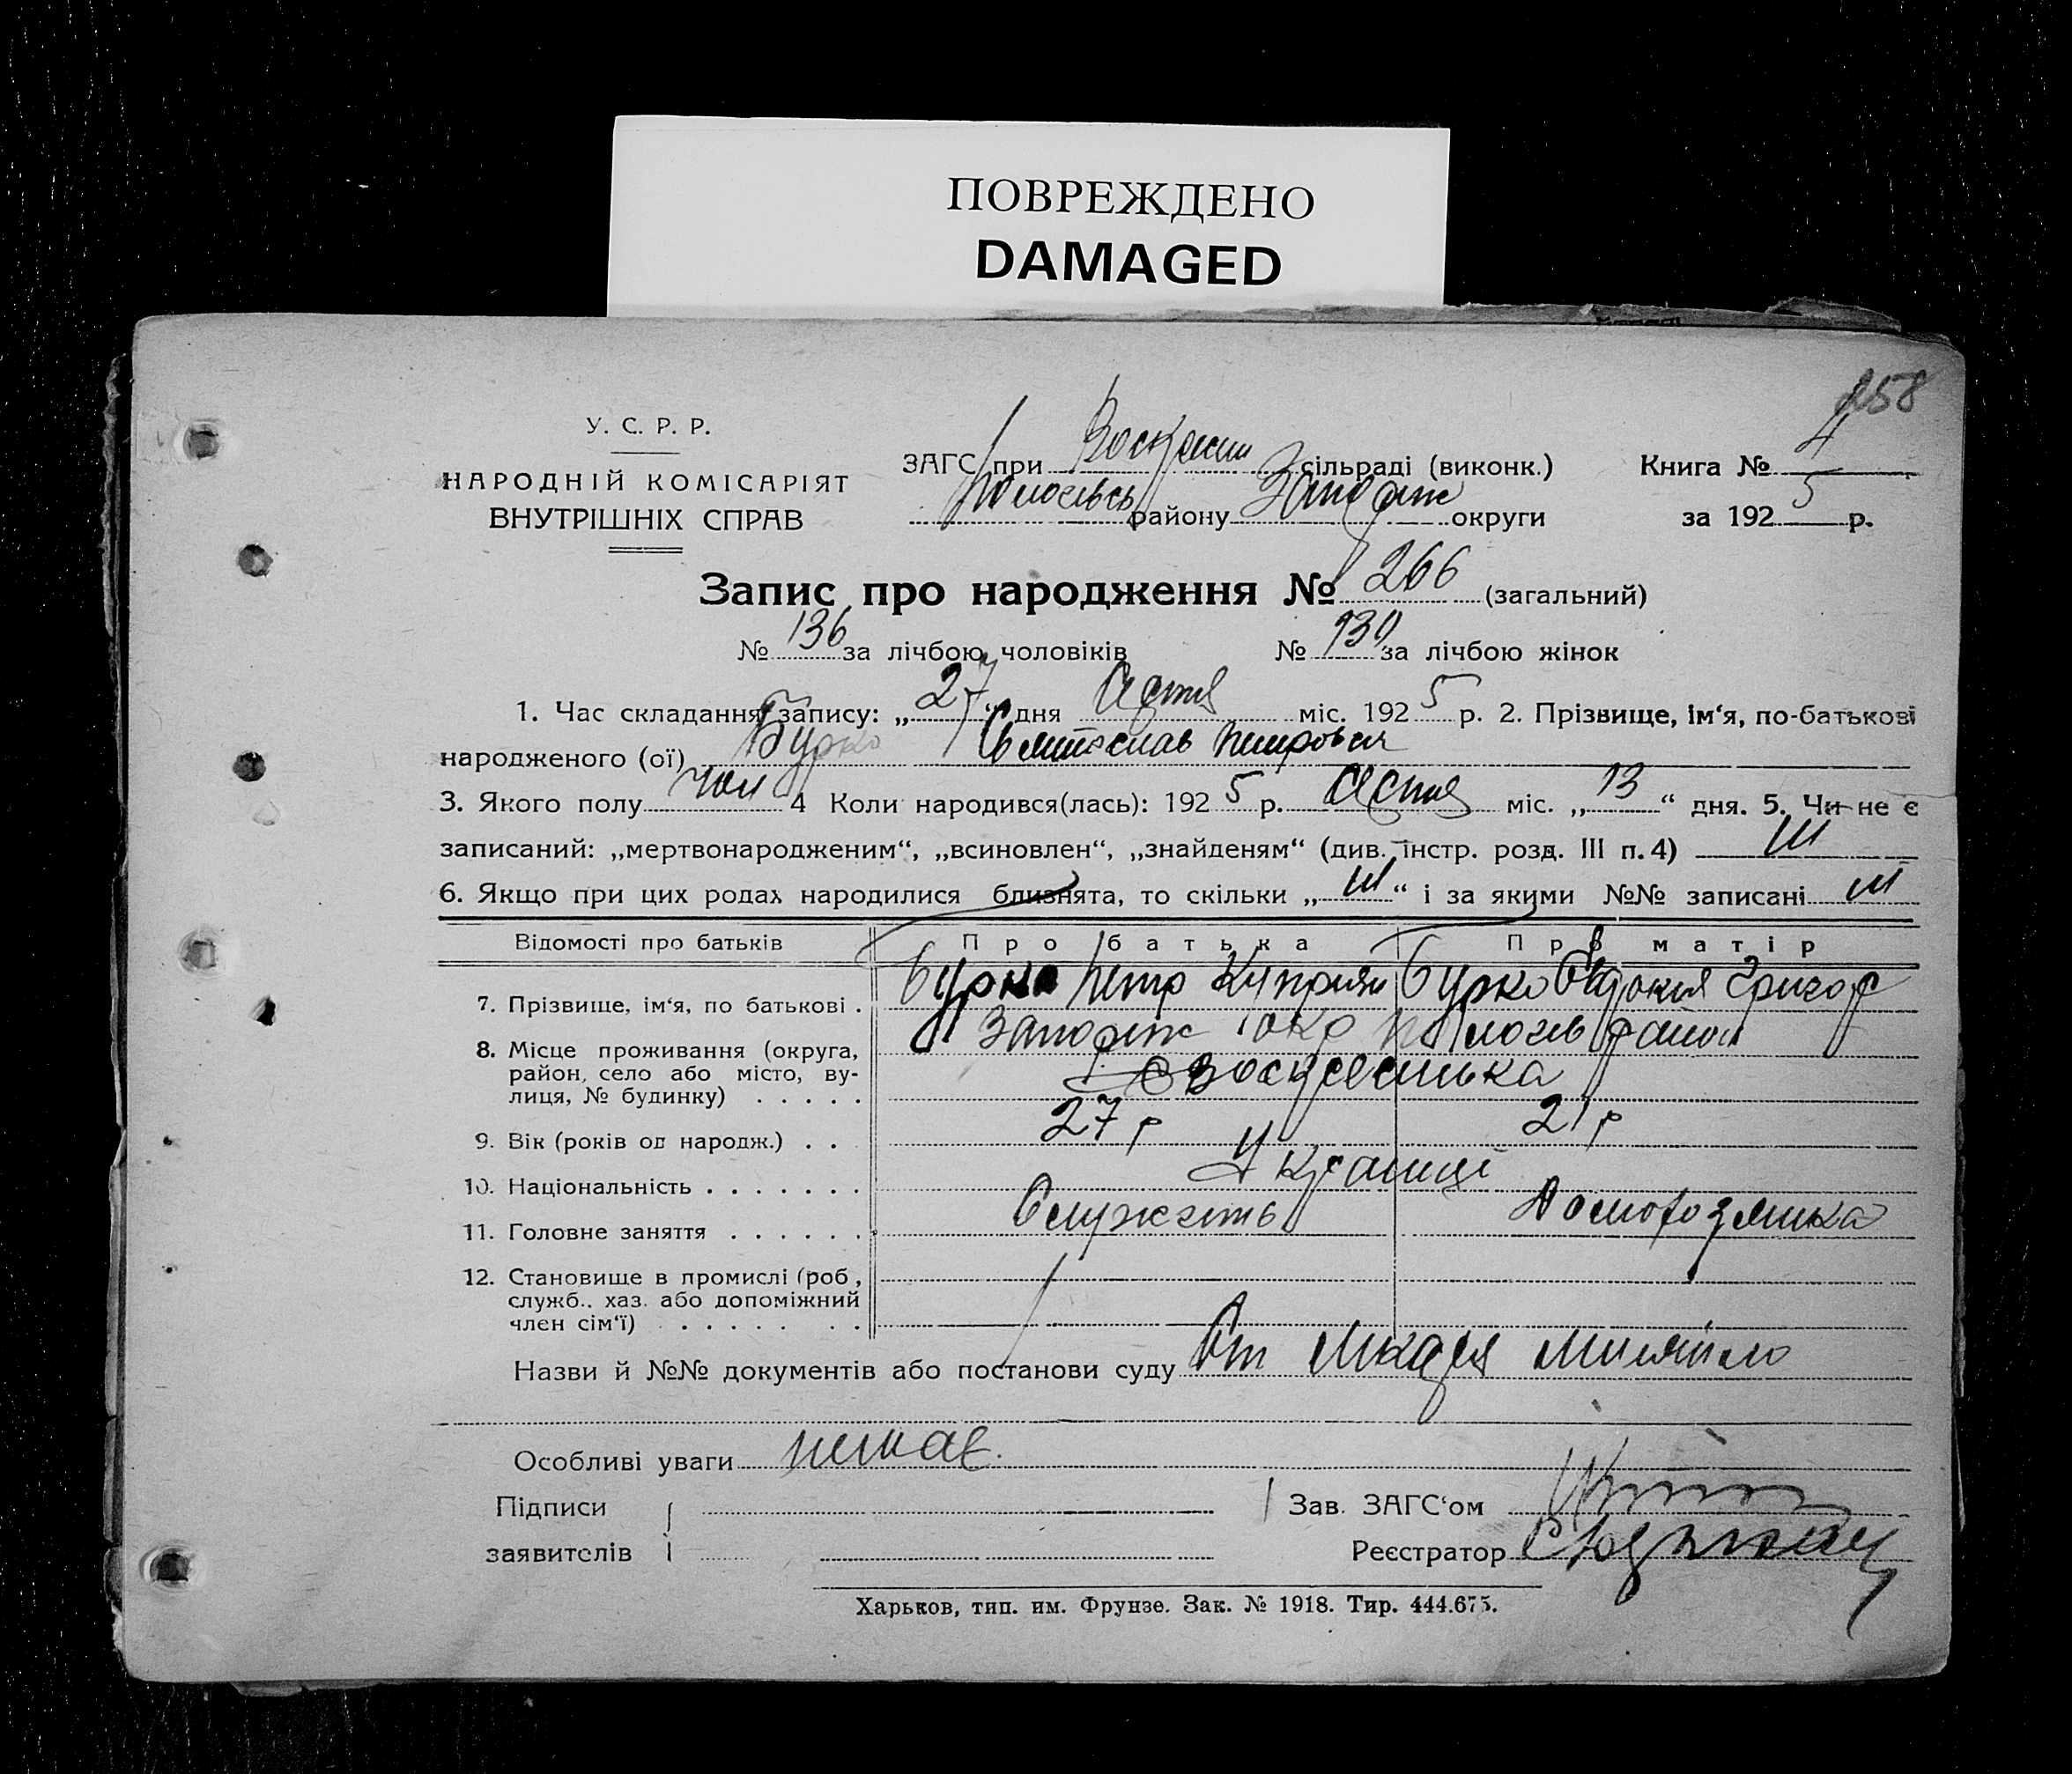 ПОВРЕЖДЕНО
DAMAGED
258
У. С. Р. Р.
НАРОДНІЙ КОМІСАРІЯТ
ВНУТРІШНІХ СПРАВ
ЗАГС при Воскресен сільраді (виконк.) Книга № 4
Пологівсь району Запоріж округи за 1925 р.
Запис про народження № 266 (загальний)
№ 136 за лічбою чоловіків № 130 за лічбою жінок
1. Час складання запису: „27“ дня міс. 1925 р. 2. Прізвище, ім‘я, по-батькові
народженого (ої) Бурко Святослав Петрович
3. Якого полу чол 4 Коли народився(лась): 1925 р. міс. „13“ дня. 5. Чи не є
записаний: „мертвонародженим“, „всиновлен“, „знайденям“ (див. інстр. розд. III п. 4) ні
6. Якщо при цих родах народилися близнята, то скільки „ні“ і за якими №№ записані ні
Відомості про батьків Про батька Про матір
7. Прізвище, ім‘я, по батькові . Бурко Петр Куприян Бурко Евдокия Григор
8. Місце проживання (округа, Запоріж окр Пологів район
район, село або місто, ву-
лиця, № будинку) . . . . . с Воскресенька
9. Вік (років од народж.) . . 27 р 21 р
10. Національність . . . . . . . Українці
11. Головне заняття . . . . . . Служить Домохозяйка
12. Становище в промислі (роб.,
служб., хаз. або допоміжний
член сім‘ї) . . . . . . .
Назви й №№ документів або постанови суду От
Особливі уваги немає.
Підписи Зав. ЗАГС‘ом
заявителів Реєстратор
Харьков, тип. им. Фрунзе. Зак. № 1918. Тир. 444.675.